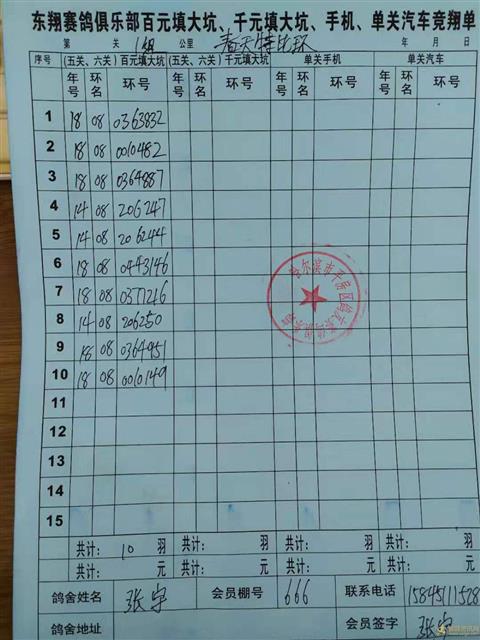 东翔赛鸽俱乐部百元填大坑、千元填大坑、手机、单关汽车竞翔单
第 关 1组 公里 春天特比环 年 月 日
序号 (五关、六关)百元填大坑 (五关、六关)千元填大坑 单关手机 单关汽车
年号 环名 环号 年号 环名 环号 年号 环名 环号 年号 环名 环号
1 18 08 0363832
2 18 08 0010482
3 18 08 0364887
4 14 08 206247
5 14 08 206244
6 18 08 0443146
7 18 08 0371246
8 14 08 206250
9 18 08 0364951
10 18 08 0010149
11
12
13
14
15
共计: 10 羽 共计: 羽 共计: 羽 共计: 羽
共计: 元 共计: 元 共计: 元 共计: 元
鸽舍姓名 张宇 会员棚号 666 联系电话 15845111528
鸽舍地址 会员签字 张宇
哈尔滨市平房区